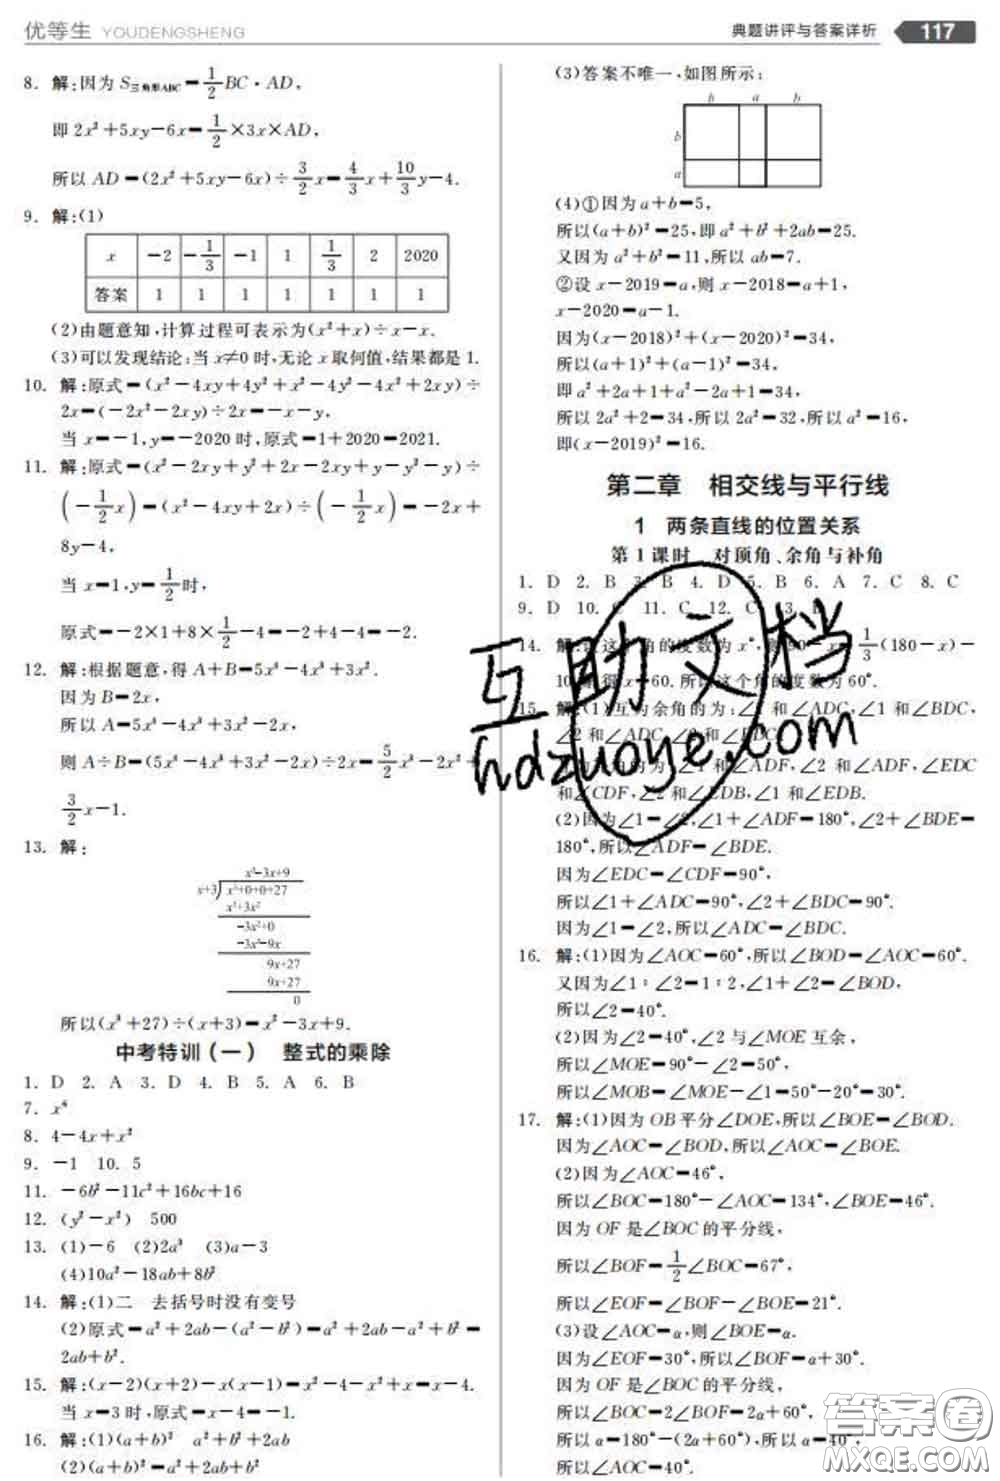 优等生 YOUDENGSHENG
典题讲评与答案详析 117
8. 解:因为 S三角形ABC=1/2 BC·AD,
即 2x²+5xy-6x=1/2×3x×AD,
所以 AD=(2x²+5xy-6x)÷3/2 x=4/3 x+10/3 y-4.
9. 解:(1)
x -2 -1/3 -1 1 1/3 2 2020
答案 1 1 1 1 1 1 1
(2)由题意知,计算过程可表示为(x²+x)÷x-x.
(3)可以发现结论:当 x≠0 时,无论 x 取何值,结果都是 1.
10. 解:原式=(x²-4xy+4y²+x²-4y²-4x²+2xy)÷
2x=(-2x²-2xy)÷2x=-x-y,
当 x=-1,y=-2020 时,原式=1+2020=2021.
11. 解:原式=(x²-2xy+y²+2x-2xy+y-y²-y)÷
(-1/2 x)=(x²-4xy+2x)÷(-1/2 x)=-2x+
8y-4,
当 x=1,y=1/2 时,
原式=-2×1+8×1/2-4=-2+4-4=-2.
12. 解:根据题意,得 A+B=5x⁴-4x³+3x².
因为 B=2x,
所以 A=5x⁴-4x³+3x²-2x,
则 A÷B=(5x⁴-4x³+3x²-2x)÷2x=5/2 x³-2x²+
3/2 x-1.
13. 解:
x²-3x+9
x+3 x³+0+0+27
x³+3x²
-3x²+0
-3x²-9x
9x+27
9x+27
0
所以(x³+27)÷(x+3)=x²-3x+9.
中考特训(一) 整式的乘除
1. D 2. A 3. D 4. B 5. A 6. B
7. x⁶
8. 4-4x+x²
9. -1 10. 5
11. -6b²-11c²+16bc+16
12. (y²-x²) 500
13. (1)-6 (2)2a³ (3)a-3
(4)10a²-18ab+8b²
14. 解:(1)二 去括号时没有变号
(2)原式=a²+2ab-(a²-b²)=a²+2ab-a²+b²=
2ab+b².
15. 解:(x-2)(x+2)-x(x-1)=x²-4-x²+x=x-4.
当 x=3 时,原式=x-4=-1.
16. 解:(1)(a+b)² a²+b²+2ab
(2)(a+b)²=a²+b²+2ab
(3)答案不唯一,如图所示:
b a b
b
a
(4)①因为 a+b=5,
所以(a+b)²=25,即 a²+b²+2ab=25.
又因为 a²+b²=11,所以 ab=7.
②设 x-2019=a,则 x-2018=a+1,
x-2020=a-1.
因为(x-2018)²+(x-2020)²=34,
所以(a+1)²+(a-1)²=34,
即 a²+2a+1+a²-2a+1=34,
所以 2a²+2=34,所以 2a²=32,所以 a²=16,
即(x-2019)²=16.
第二章 相交线与平行线
1 两条直线的位置关系
第 1 课时 对顶角、余角与补角
1. D 2. B 3. B 4. D 5. B 6. A 7. C 8. C
9. D 10. C 11. C 12. C 13. B
14. 解:设这个角的度数为 x°,则 90-x=1/3(180-x)-
10,解得 x=60.所以这个角的度数为 60°.
15. 解:(1)互为余角的为:∠1 和∠ADC,∠1 和∠BDC,
∠2 和∠ADC,∠2 和∠BDC.
互为补角的为:∠1 和∠ADF,∠2 和∠ADF,∠EDC
和∠CDF,∠2 和∠EDB,∠1 和∠EDB.
(2)因为∠1=∠2,∠1+∠ADF=180°,∠2+∠BDE=
180°,所以∠ADF=∠BDE.
因为∠EDC=∠CDF=90°,
所以∠1+∠ADC=90°,∠2+∠BDC=90°.
因为∠1=∠2,所以∠ADC=∠BDC.
16. 解:(1)因为∠AOC=60°,所以∠BOD=∠AOC=60°.
又因为∠1∶∠2=1∶2,∠1+∠2=∠BOD,
所以∠2=40°.
(2)因为∠2=40°,∠2 与∠MOE 互余,
所以∠MOE=90°-∠2=50°,
所以∠MOB=∠MOE-∠1=50°-20°=30°.
17. 解:(1)因为 OB 平分∠DOE,所以∠BOE=∠BOD.
因为∠AOC=∠BOD,所以∠AOC=∠BOE.
(2)因为∠AOC=46°,
所以∠BOC=180°-∠AOC=134°,∠BOE=46°.
因为 OF 是∠BOC 的平分线,
所以∠BOF=1/2∠BOC=67°,
所以∠EOF=∠BOF-∠BOE=21°.
(3)设∠AOC=α,则∠BOE=α.
因为∠EOF=30°,所以∠BOF=α+30°.
因为 OF 是∠BOC 的平分线,
所以∠BOC=2∠BOF=2α+60°,
所以 α=180°-(2α+60°),所以 α=40°,
即∠AOC=40°.
互助文档
hdzuoye.com
答案圈
MXQE.COM